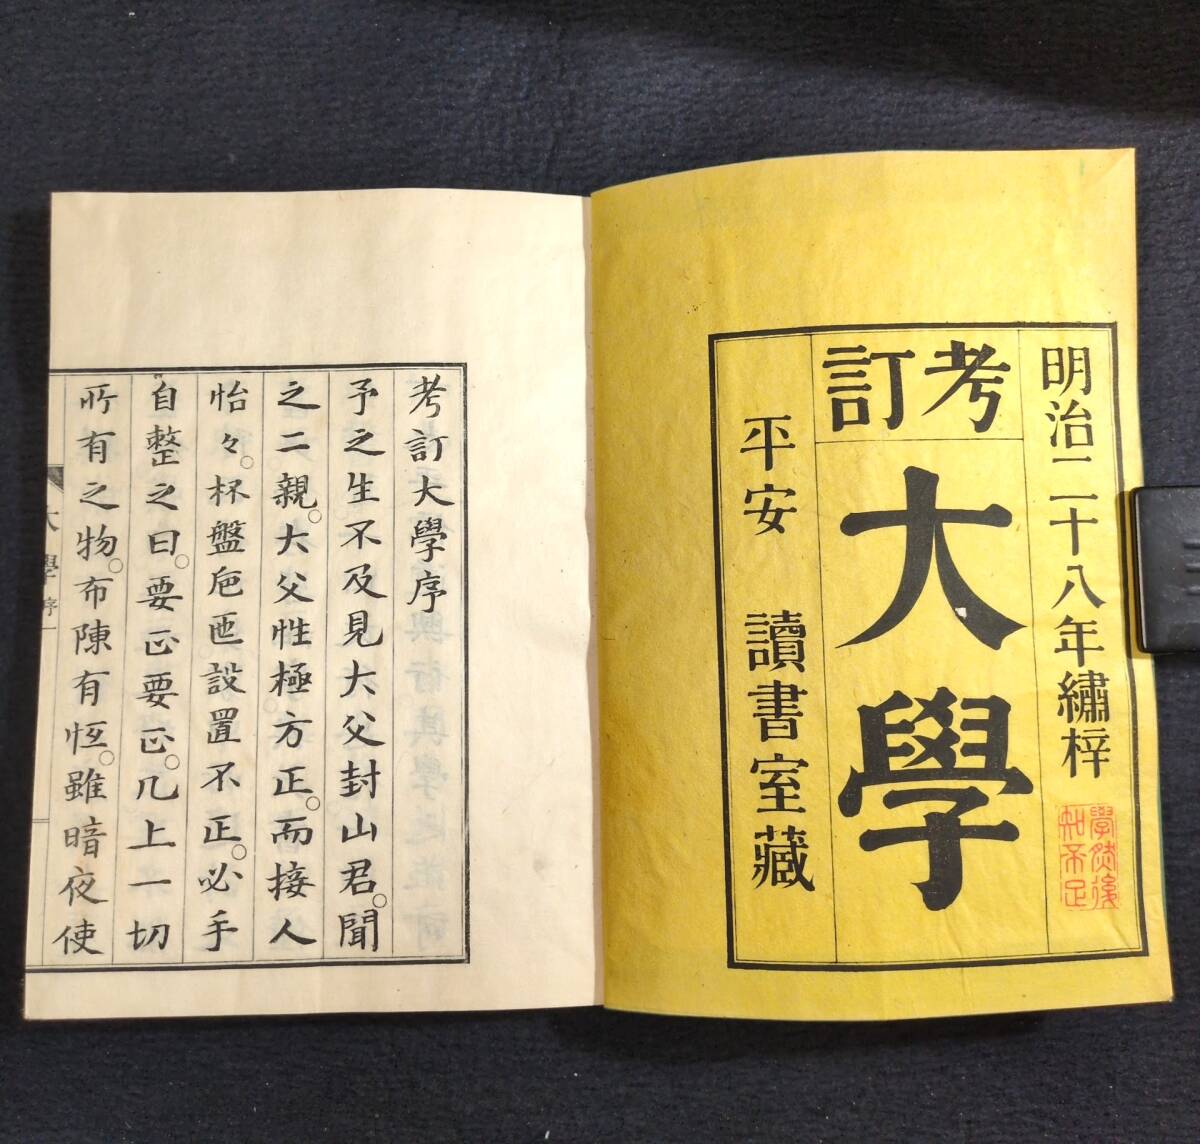 明治二十八年繡梓
學然後
知不足
考訂
大學
平安 讀書室藏
考訂大學序
予之生不及見大父封山君。聞
之二親。大父性極方正。而接人
怡々。杯盤巵匜設置不正。必手
自整之曰。要正要正。凡上一切
所有之物。布陳有恆。雖暗夜使
大學 序 一